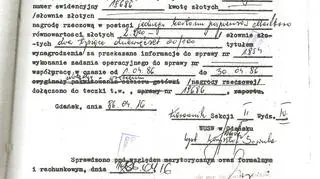 numer ewidencyjny 18686 kwotę złotych
/słownie złotych
nagrodę rzeczową w postaci jednego kartonu papierosów Marlboro
równowartości złotych 2.200,- /słownie zło-
tych dwa tysiące dwieście 00/100 tytułem
wynagrodzenia/ za przekazane informacje do sprawy nr
wykonanie zadania operacyjnego do sprawy nr
współpracę w czasie od 1.04.86 do 30.04.86
oryginały pokwitowania odbioru gotówki /nagrody rzeczowej/
dołączono do teczki t.w. nr 18686, raportu.
Gdańsk, dnia 86.04.16 Kierownik Sekcji II Wydz. IV
WUSW w Gdańsku
Sprawdzono pod względem merytorycznym oraz formalnym
i rachunkowym, dnia 86.04.16